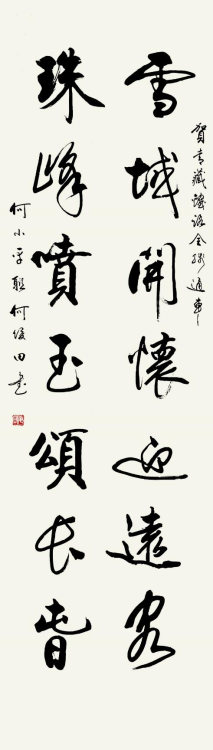 賀青藏鐵路全線通車
雪域開懷迎遠客
珠峰噴玉頌長旾
何小平聯何俊田書